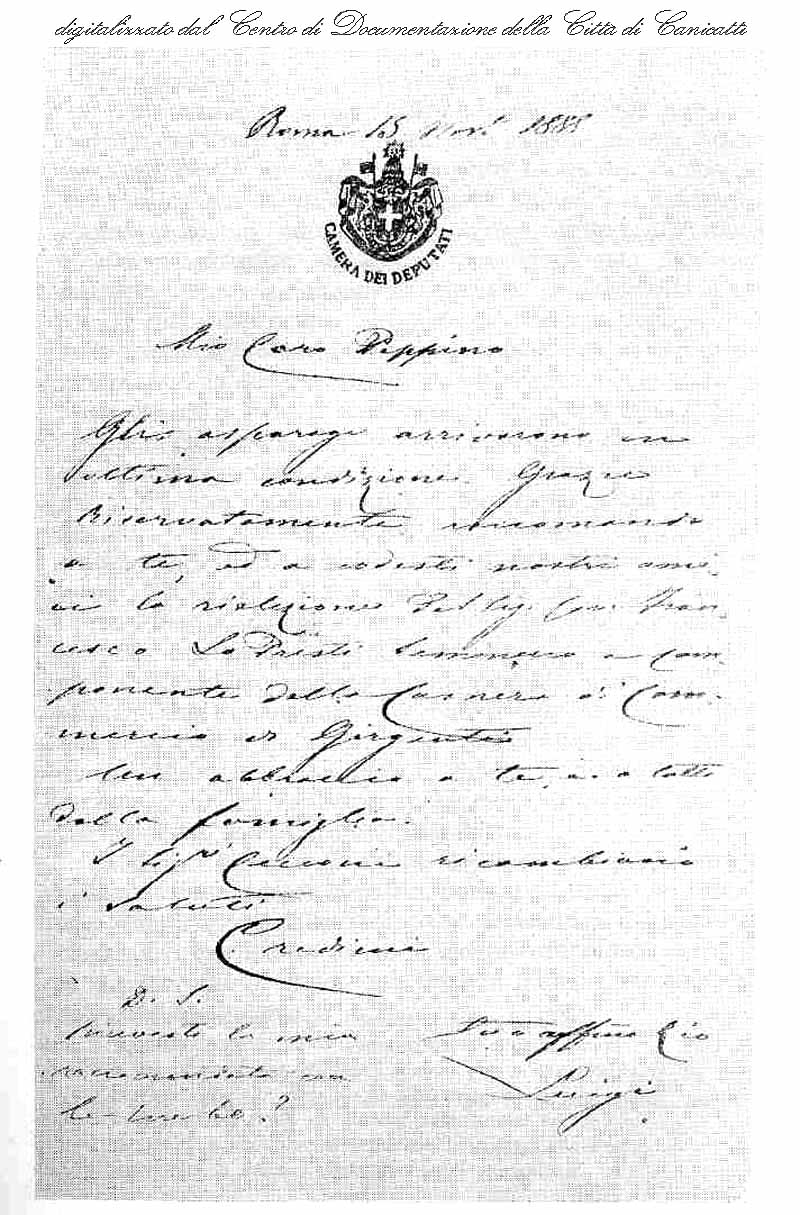 digitalizzato dal Centro di Documentazione della Città di Canicattì
Roma 15 Nov. 1888
CAMERA DEI DEPUTATI
Mio Caro Peppino
Gli asparagi arrivarono in
ottima condizione. Grazie
Riservatamente raccomando
a te, ed a codesti nostri ami-
ci la rielezione del Sig. Cav. Fran-
cesco Lo Presti a com-
ponente della Camera di Com-
mercio di Girgenti
Un abbraccio a te, e a tutti
della famiglia.
I Sig.ri ricambiano
i saluti
Credimi
P. S.
Ricevesti la mia
raccomandata con
Tuo aff.mo Zio
Luigi